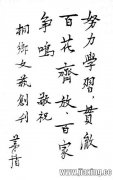 努力學習，貫澈
百花齊放，百家
爭鳴 敬祝
桐鄉文藝創刊
茅盾
www.jiaxing.cc